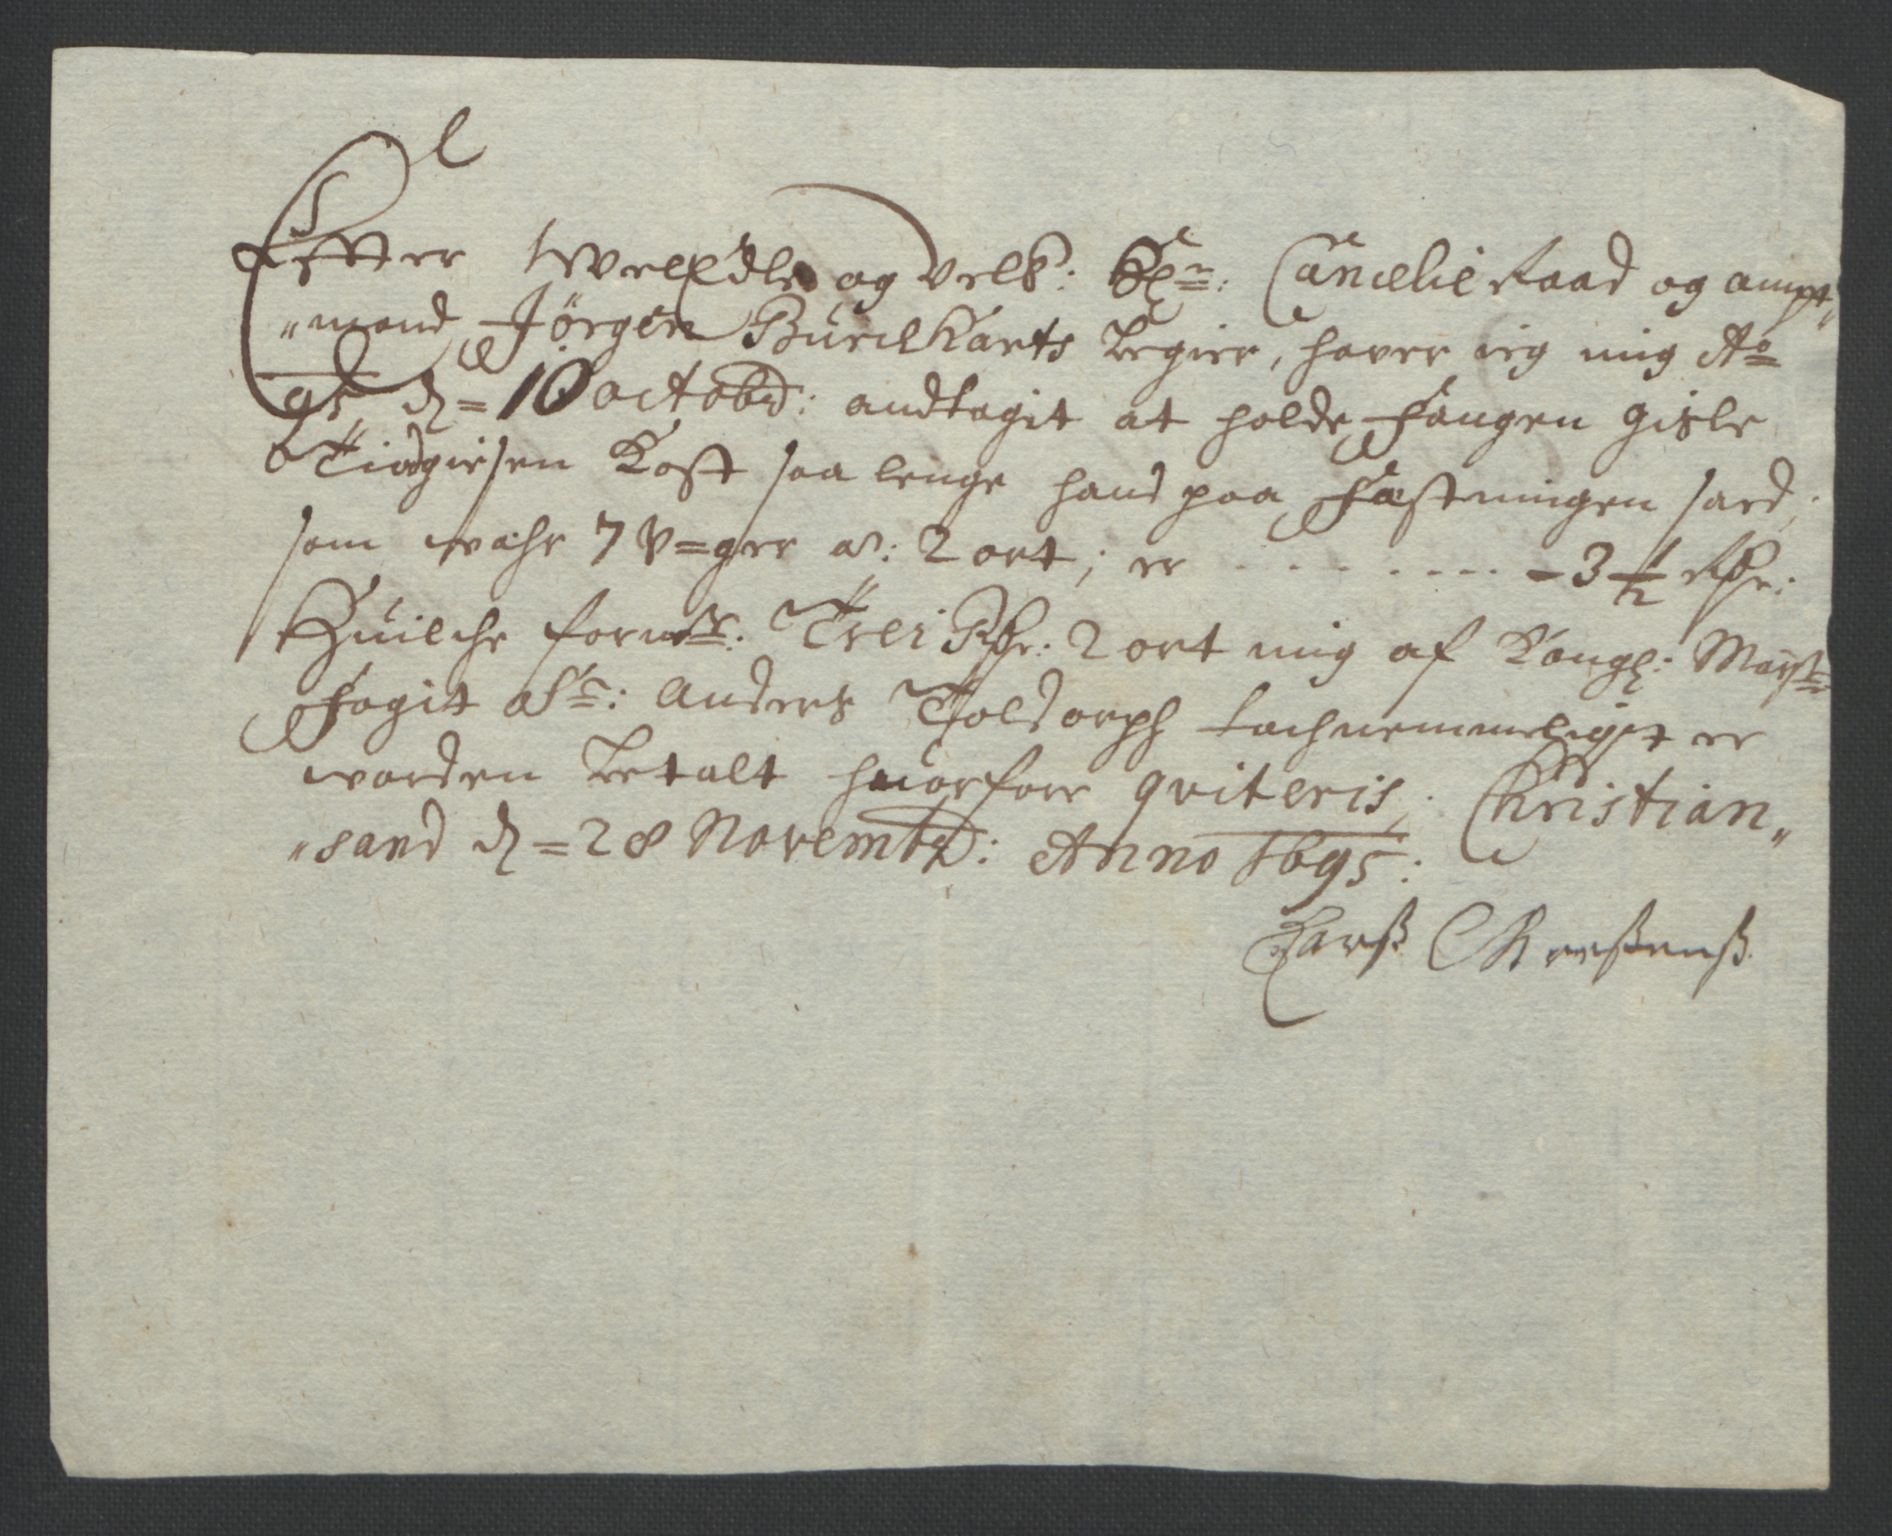 Effter welEdle og Velb: Hr: Cancelie Raad og ampt„
„mand Jörgen BurchHarts begier, hafver ieg mig Ao
95 d = 10 octobr: andtagit at holde Fangen Gisle
Kost saa lenge hand paa Fæstningen sad;
som wahr 7 V=ger a: 2 ort; er - - - - - - - - 3 1/2 Rdr:
Huilche forneste: Trei Rdr: 2 ort mig af Kongl: Mayts
Fogit Sr: Anders Toldorph tachnemmeligst er
worden betalt huorfore qviteris; Christian„
„sand d = 28 Novembr: Anno 1695:
Larß